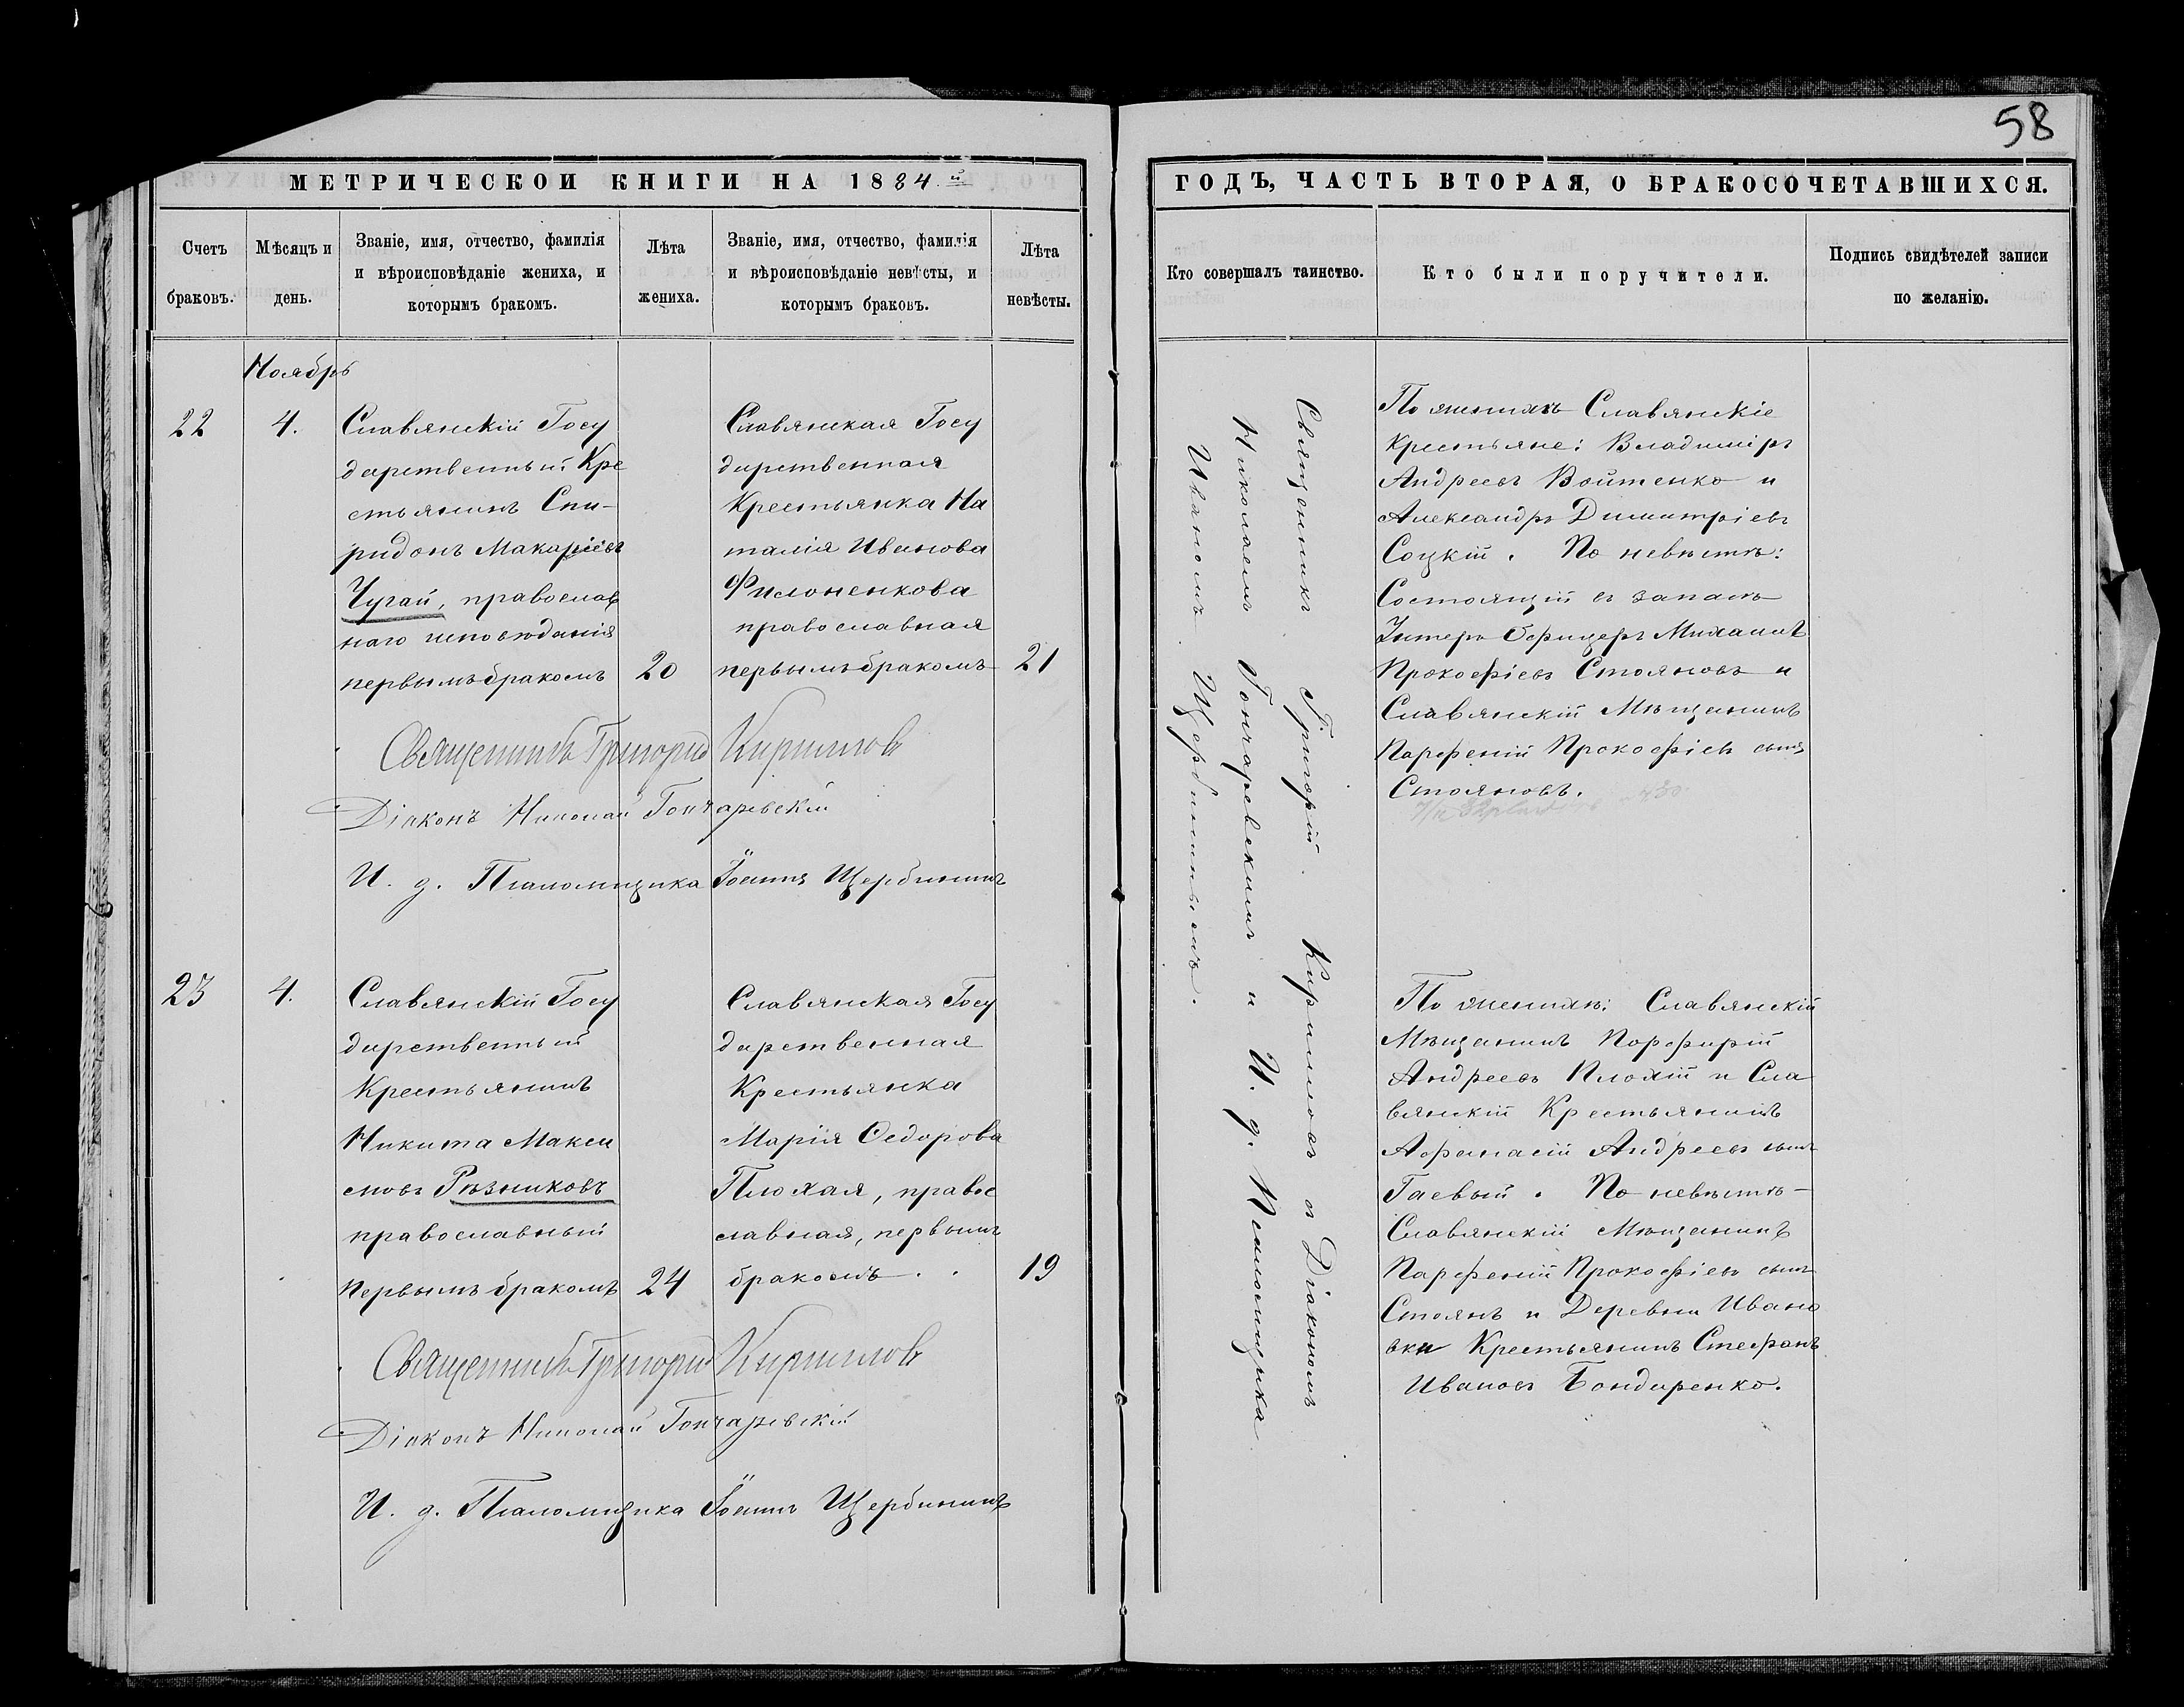 58
МЕТРИЧЕСКОЙ КНИГИ НА 1884й
Счетъ браковъ.
Мѣсяцъ и день.
Званіе, имя, отчество, фамилія
и вѣроисповѣданіе жениха, и
которымъ бракомъ.
Лѣта жениха.
Званіе, имя, отчество, фамилія
и вѣроисповѣданіе невѣсты, и
которымъ бракомъ.
Лѣта невѣсты.
Ноябрь
22
4.
Славянскій Госу
дарственный Кре
стьянинъ Спи-
ридонъ Макаріевъ
Чугай, православ
наго исповѣданія
первымъ бракомъ
20
Славянская Госу
дарственная
Крестьянка На
талія Иванова
Филоненкова
православная
первымъ бракомъ
21
Священникъ Григорій Кирилловъ
Діаконъ Николай Гончаревскій
И. д. Псаломщика Іоаннъ Щербининъ
23
4.
Славянскій Госу
дарственный
Крестьянинъ
Никита Макси
мовъ Рѣзниковъ
православный
первымъ бракомъ
24
Славянская Госу
дарственная
Крестьянка
Марія Ѳедорова
Плохая, правос
славная, первымъ
бракомъ . .
19
Священникъ Григорій Кирилловъ
Діаконъ Николай Гончаревскій
И. д. Псаломщика Іоаннъ Щербининъ
ГОДЪ, ЧАСТЬ ВТОРАЯ, О БРАКОСОЧЕТАВШИХСЯ.
Кто совершалъ таинство.
Кто были поручители.
Подпись свидѣтелей записи
по желанію.
Священникъ Григорій Кирилловъ съ Діакономъ
Николаемъ Гончаревскимъ и И. д. Псаломщика
Иваномъ Щербининымъ.
По женихѣ Славянскіе
Крестьяне: Владиміръ
Андреевъ Войтенко и
Александръ Димитріевъ
Соцкій. По невѣстѣ:
Состоящій въ запасѣ
Унтеръ Офицеръ Михаилъ
Прокофіевъ Стояновъ и
Славянскій Мѣщанинъ
Парфеній Прокофіевъ сынъ
Стояновъ.
По женихѣ: Славянскій
Мѣщанинъ Порфирій
Андреевъ Плохій и Сла
вянскій Крестьянинъ
Афанасій Андреевъ сынъ
Гаевый. По невѣстѣ-
Славянскій Мѣщанинъ
Парфеній Прокофіевъ сынъ
Стоянъ и Деревни Ивано
вки Крестьянинъ Стефанъ
Ивановъ Бондаренко.